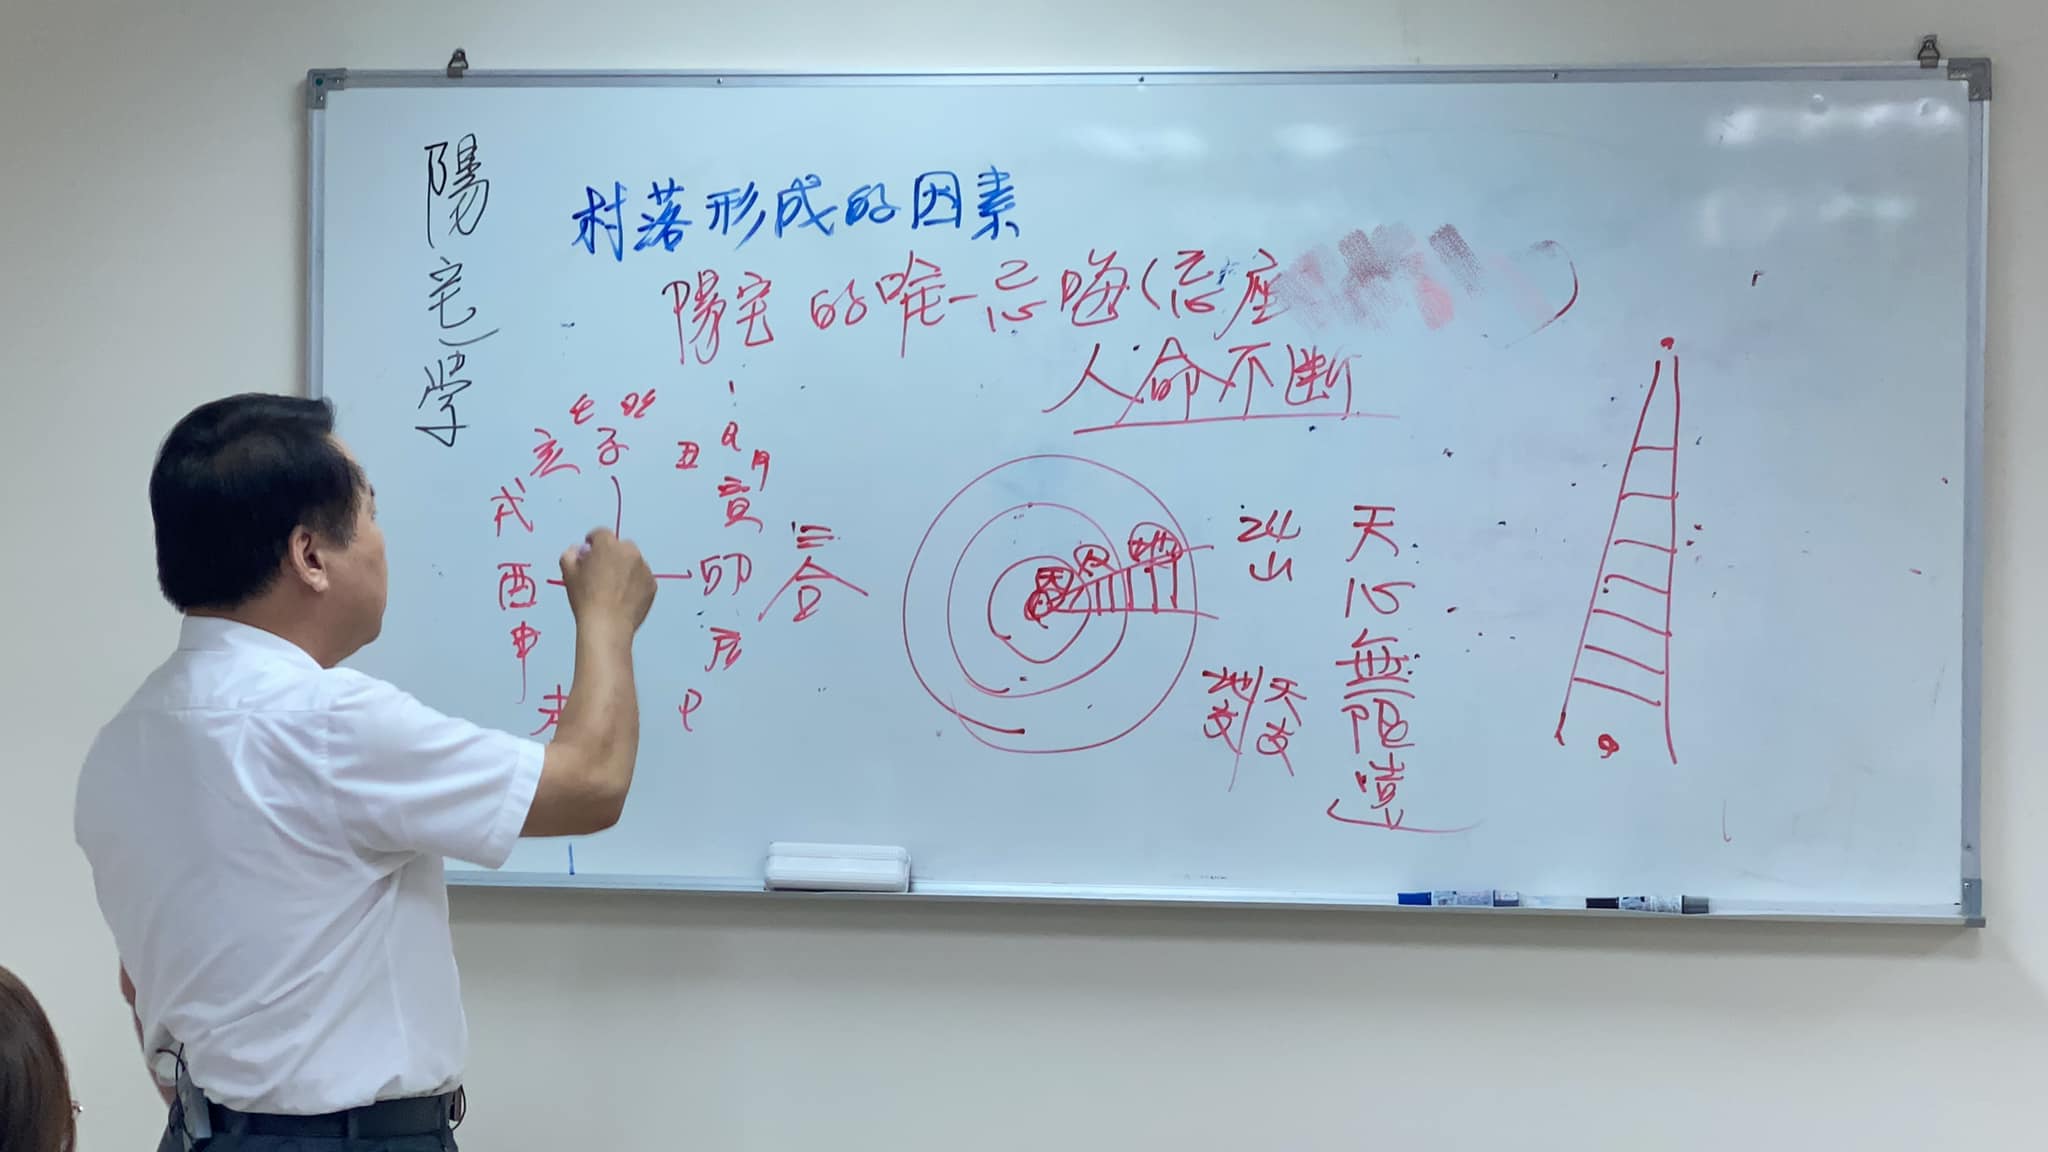 陽宅学
村落形成的因素
陽宅的唯一忌晦(忌座 )
人命不断
亥 子 丑
戌 寅
酉 卯
申 辰
未
三合
24山
地支/天支
天心無限遠